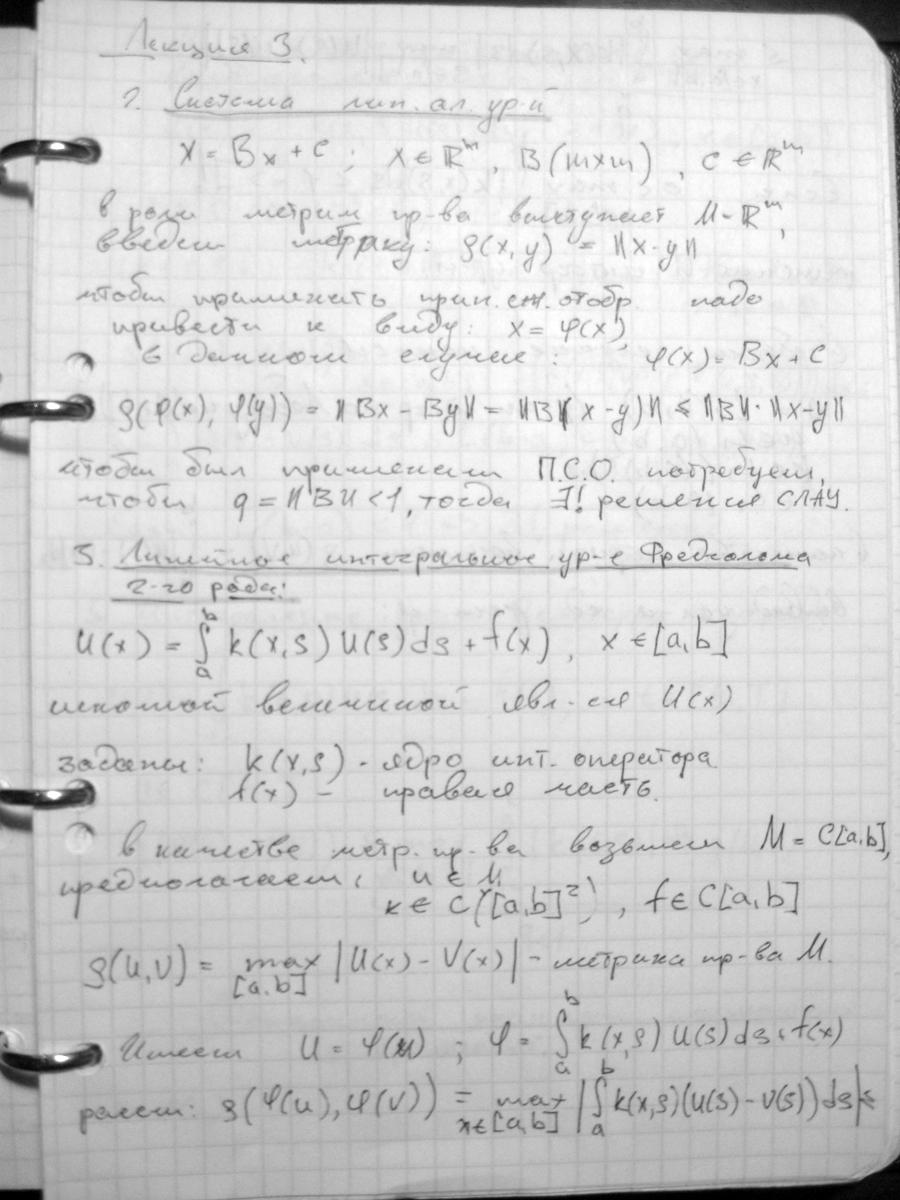 Лекция 3.
2. Система лин. ал. ур-й
x = Bx + c ; x ∈ ℝᵐ, B (m×m), c ∈ ℝᵐ
в роли метрич пр-ва выступает M - ℝᵐ,
введем метрику: ρ(x, y) = ‖x-y‖
чтобы применить прин. сж. отобр. надо
привести к виду: x = φ(x),
в данном случае: φ(x) = Bx + c
ρ(φ(x), φ(y)) = ‖Bx - By‖ = ‖B(x-y)‖ ≤ ‖B‖·‖x-y‖
чтобы был применим П.С.О. потребуем,
чтобы q = ‖B‖ < 1, тогда ∃! решения СЛАУ.
3. Линейное интегральное ур-е Фредгольма
2-го рода:
u(x) = ∫ₐᵇ k(x,s) u(s) ds + f(x), x ∈ [a,b]
искомой величиной явл-ся u(x)
заданы: k(x,s) - ядро инт. оператора
f(x) - правая часть.
в качестве метр. пр-ва возьмем M = C[a,b],
предполагаем, u ∈ M
k ∈ C([a,b]²), f ∈ C[a,b]
ρ(u,v) = max_[a,b] |u(x) - v(x)| - метрика пр-ва M.
Имеем u = φ(u) ; φ = ∫ₐᵇ k(x,s) u(s) ds + f(x)
рассм: ρ(φ(u), φ(v)) = max_x∈[a,b] |∫ₐᵇ k(x,s)(u(s) - v(s)) ds| ≤